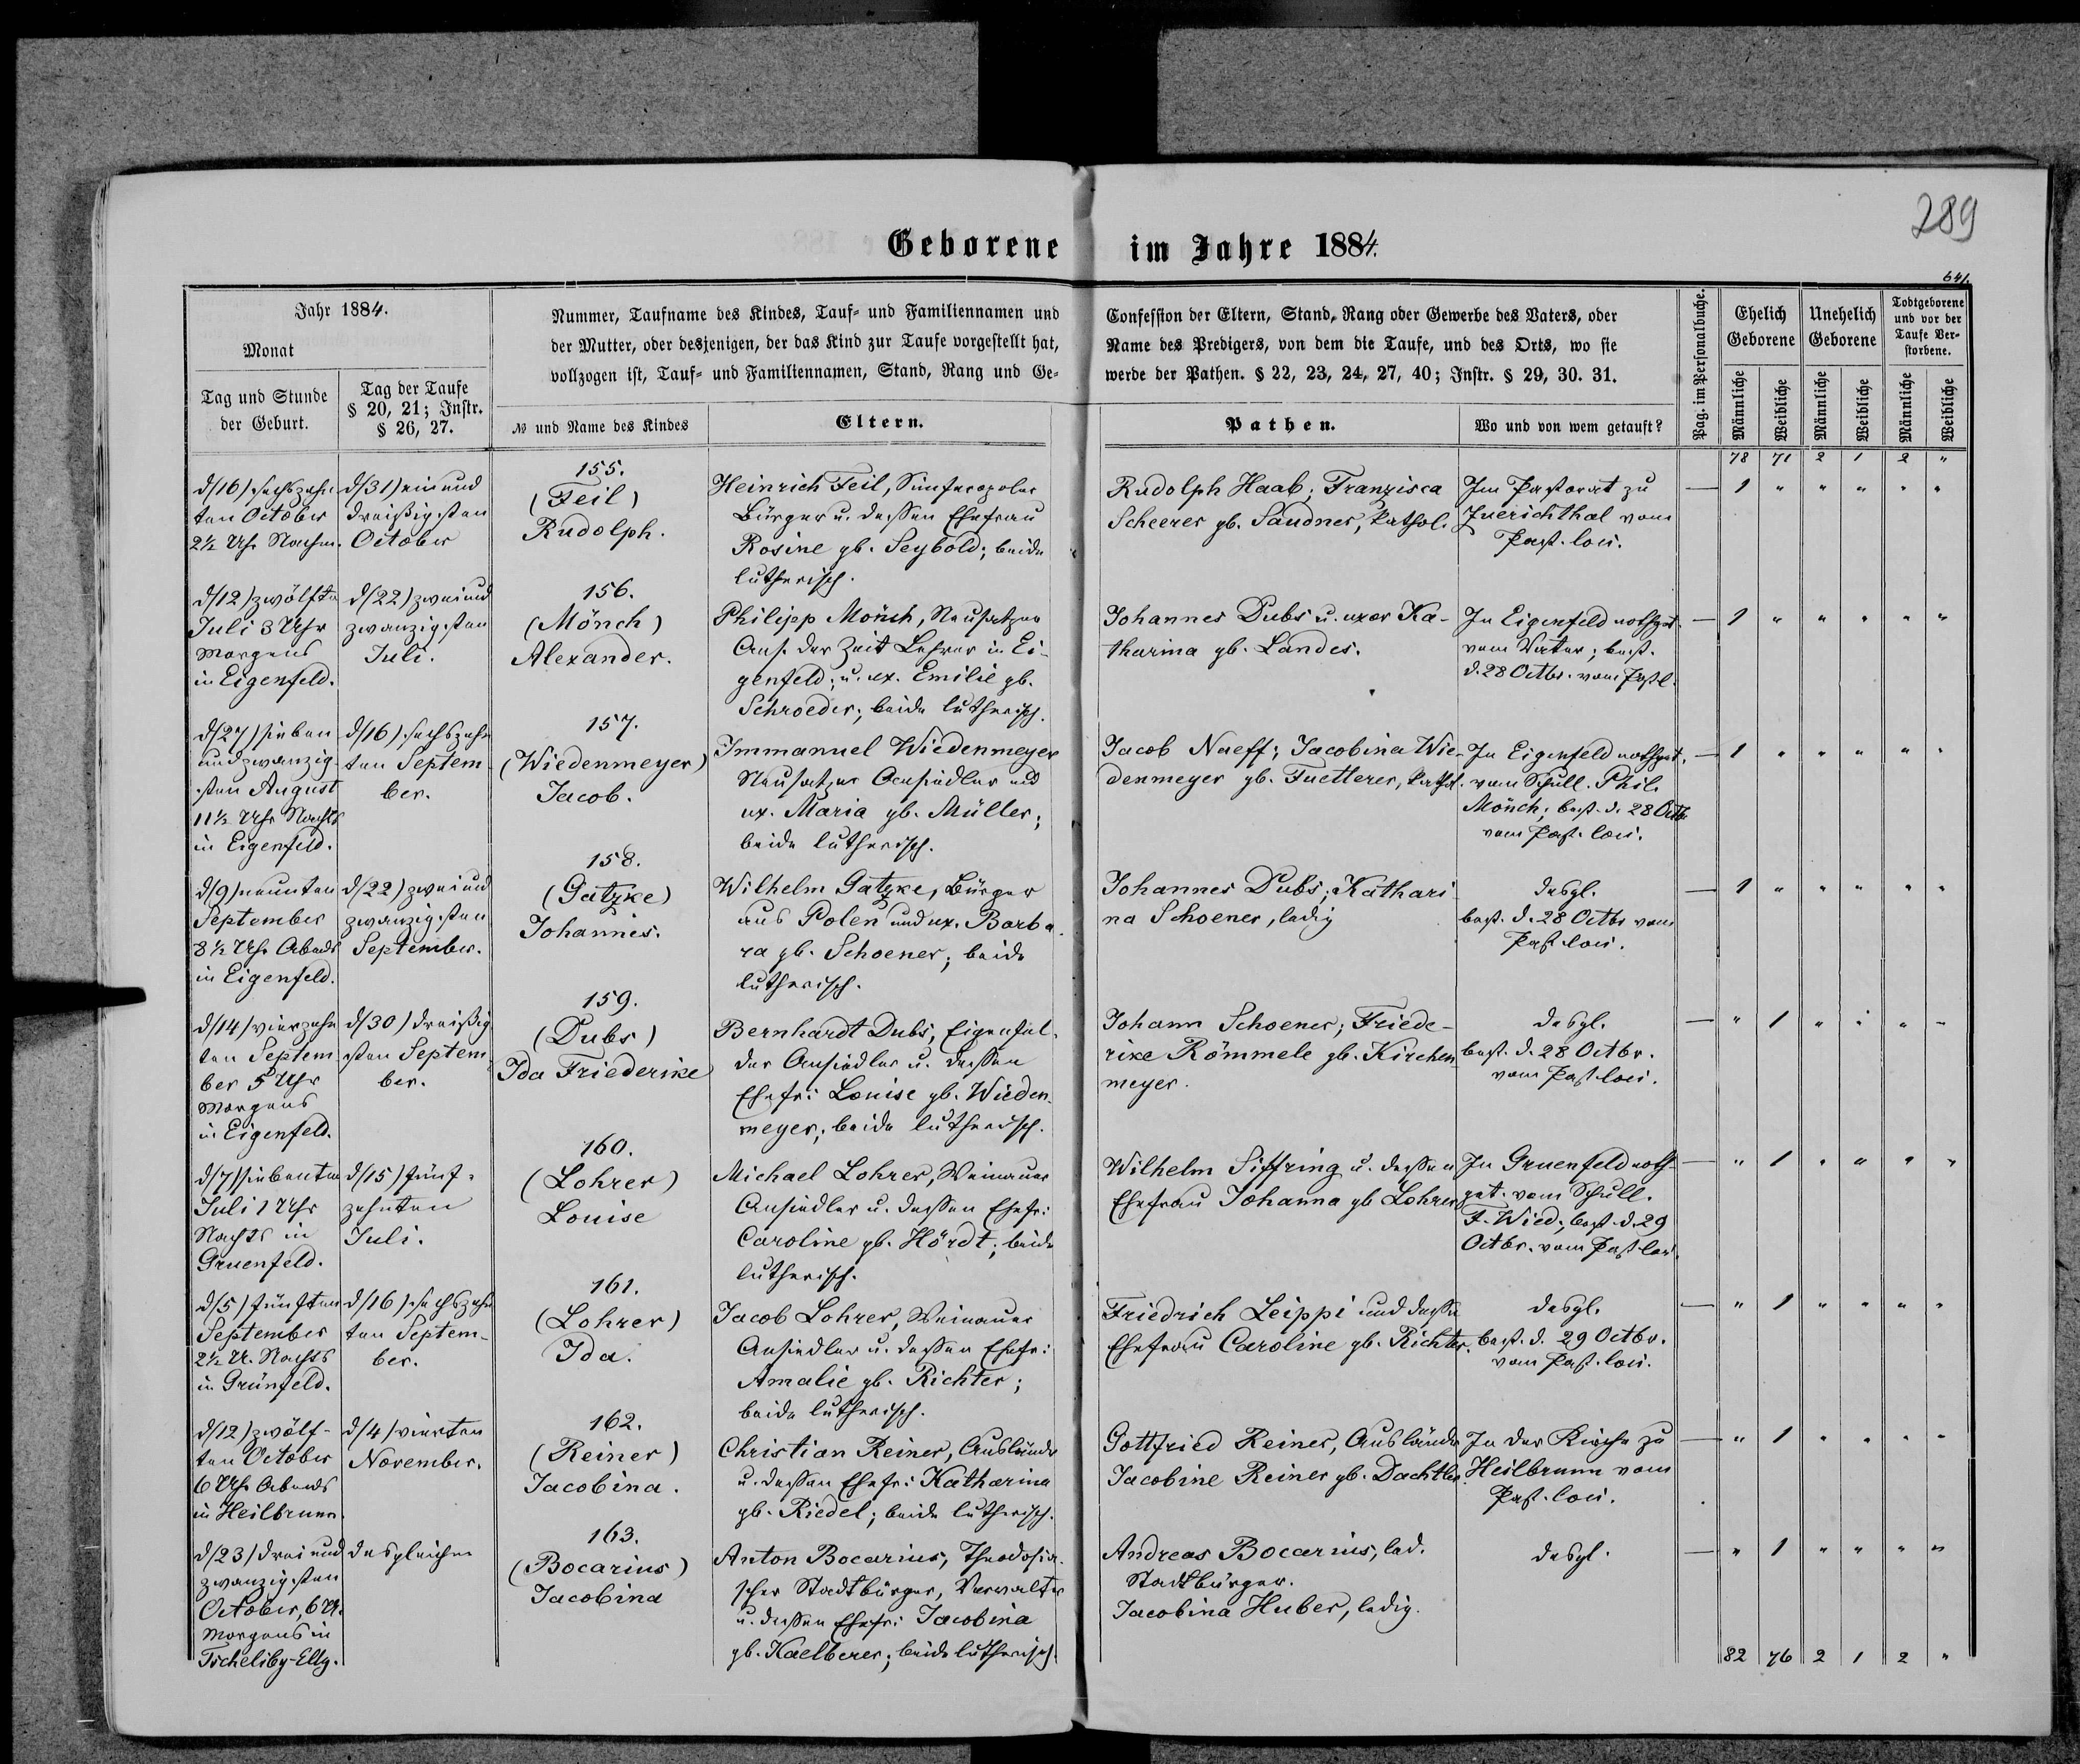 289
Geborene im Jahre 1884.
641.
Jahr 1884.
Monat
Tag und Stunde
der Geburt.
Tag der Taufe
§ 20, 21; Instr.
§ 26, 27.
Nummer, Taufname des Kindes, Tauf- und Familiennamen und
der Mutter, oder desjenigen, der das Kind zur Taufe vorgestellt hat,
vollzogen ist, Tauf- und Familiennamen, Stand, Rang und Ge-
№ und Name des Kindes
Eltern.
Confession der Eltern, Stand, Rang oder Gewerbe des Vaters, oder
Name des Predigers, von dem die Taufe, und des Orts, wo sie
werbe der Pathen. § 22, 23, 24, 27, 40; Instr. § 29, 30. 31.
Pathen.
Wo und von wem getauft?
Pag. im Personalbuche.
Ehelich
Geborene
Unehelich
Geborene
Todtgeborene
und vor der
Taufe Ver-
storbene.
Männliche
Weibliche
Männliche
Weibliche
Männliche
Weibliche
78 71 2 1 2 "
d/16) sechszehn
ten October
2½ Uhr Nachm.
d/31) ein und
dreißigsten
October
155.
(Feil)
Rudolph.
Heinrich Feil, Simferopoler
Bürger u. dessen Ehefrau
Rosine gb. Seybold; beide
lutherisch.
Rudolph Haab; Franzisca
Scheerer gb. Saudner, kathol.
Im Pastorat zu
Zuerichthal vom
Past. loci.
— 1 " " " " "
d/12) zwölften
Juli 3 Uhr
Morgens
in Eigenfeld.
d/22) zwei und
zwanzigsten
Juli.
156.
(Mönch)
Alexander.
Philipp Mönch, Neusatzer
Ans. der Zeit Lehrer in Ei-
genfeld; u. ux. Emilie gb.
Schroeder; beide lutherisch.
Johannes Dubs u. uxor Ka-
tharina gb. Landes.
In Eigenfeld nothget.
vom Vater; best.
d. 28 Octbr. vom Past l.
— 1 " " " " "
d/27) sieben
und zwanzig-
sten August
11½ Uhr Nachts
in Eigenfeld.
d/16) sechszehn
ten Septem-
ber.
157.
(Wiedenmeyer)
Jacob.
Immanuel Wiedenmeyer
Neusatzer Ansiedler und
ux. Maria gb. Müller;
beide lutherisch.
Jacob Naeff; Jacobina Wie-
denmeyer gb. Fuetterer, kathol.
In Eigenfeld nothget.
vom Schull. Phil.
Mönch; best. d. 28 Octb.
vom Past. loci.
— 1 " " " " "
d/9) neunten
September
8½ Uhr Abends
in Eigenfeld.
d/22) zwei und
zwanzigsten
September.
158.
(Gatzke)
Johannes.
Wilhelm Gatzke, Bürger
aus Polen und ux. Barba-
ra gb. Schoener; beide
lutherisch.
Johannes Dubs; Kathari-
na Schoener, ledig
desgl.
best. d. 28 Octbr vom
Past. loci.
— 1 " " " " "
d/14) vierzehn
ten Septem-
ber 5 Uhr
Morgens
in Eigenfeld.
d/30) dreißig
sten Septem-
ber.
159.
(Dubs)
Ida Friederike
Bernhardt Dubs, Eigenfel-
der Ansiedler u. dessen
Ehefr: Louise gb. Wieden-
meyer; beide lutherisch.
Johann Schoener; Friede-
rike Römmele gb. Kirchen-
meyer.
desgl.
best. d. 28 Octbr.
vom Past. loci.
— " 1 " " " "
d/7) siebenten
Juli 1 Uhr
Nachts in
Gruenfeld.
d/15) fünf-
zehnten
Juli.
160.
(Lohrer)
Louise
Michael Lohrer, Weinauer
Ansiedler u. dessen Ehefr:
Caroline gb. Hördt; beide
lutherisch.
Wilhelm Siffring u. dessen
Ehefrau Johanna gb Lohrer.
In Gruenfeld noth-
get. vom Schull.
F. Wied; best. d. 29
Octbr. vom Past. loci.
— " 1 " " " "
d/5) fünften
September
2½ U. Nachts
in Grünfeld.
d/16) sechszehn
ten Septem-
ber.
161.
(Lohrer)
Ida.
Jacob Lohrer, Weinauer
Ansiedler u. dessen Ehefr:
Amalie gb. Richter;
beide lutherisch.
Friedrich Leippi und dessen
Ehefrau Caroline gb. Richter.
desgl.
best. d. 29 Octbr.
vom Past. loci.
— " 1 " " " "
d/12) zwölf-
ten October
6 Uhr Abends
in Heilbrunn.
d/4) vierten
November.
162.
(Reiner)
Jacobina.
Christian Reiner, Ausländer
u. dessen Ehefr: Katharina
gb. Riedel; beide lutherisch.
Gottfried Reiner, Ausländer
Jacobine Reiner gb. Dachtler.
In der Kirche zu
Heilbrunn vom
Past. loci.
— " 1 " " " "
d/23) drei und
zwanzigsten
October, 6 U.
Morgens in
Tschelsby-Ellg.
desgleichen
163.
(Bocarius)
Jacobina
Anton Bocarius, Theodosia-
scher Stadtbürger, Verwalter
u. dessen Ehefr: Jacobina
gb. Kaelberer; beide lutherisch.
Andreas Bocarius, led.
Stadtbürger.
Jacobina Huber, ledig.
desgl.
— " 1 " " " "
82 76 2 1 2 "